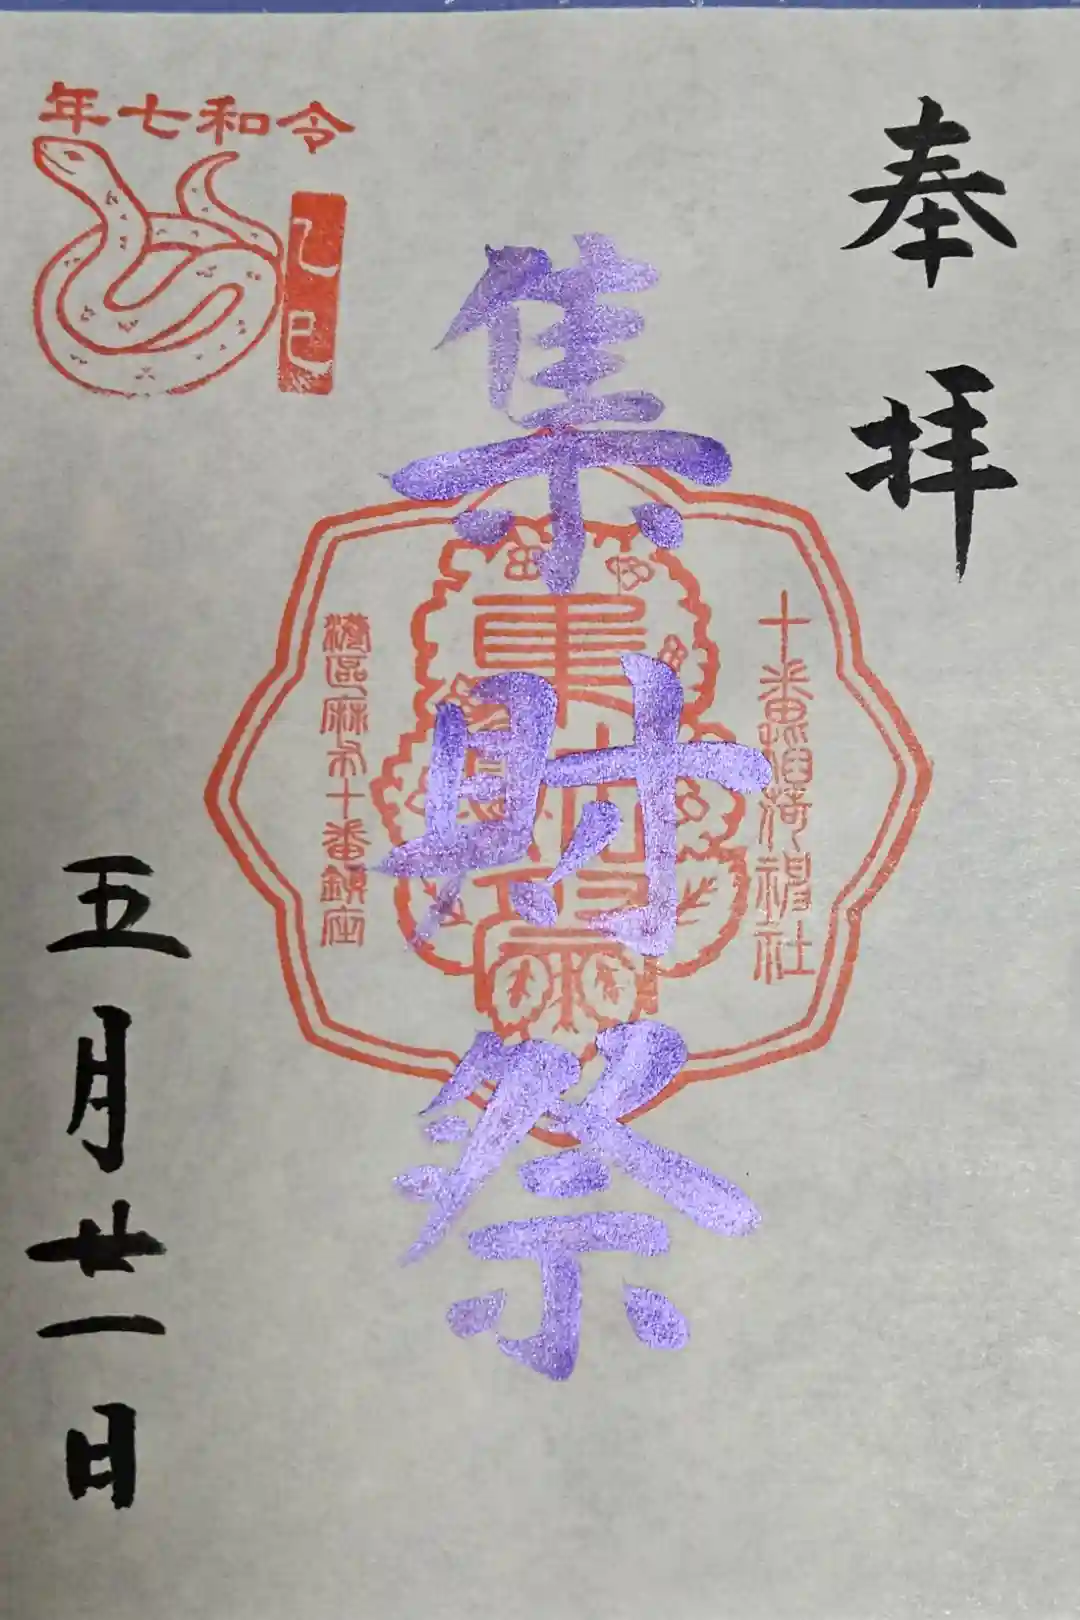 奉拝
十番稲荷神社
集財祭
港區麻布十番鎮座
令和七年
乙巳
五月廿一日